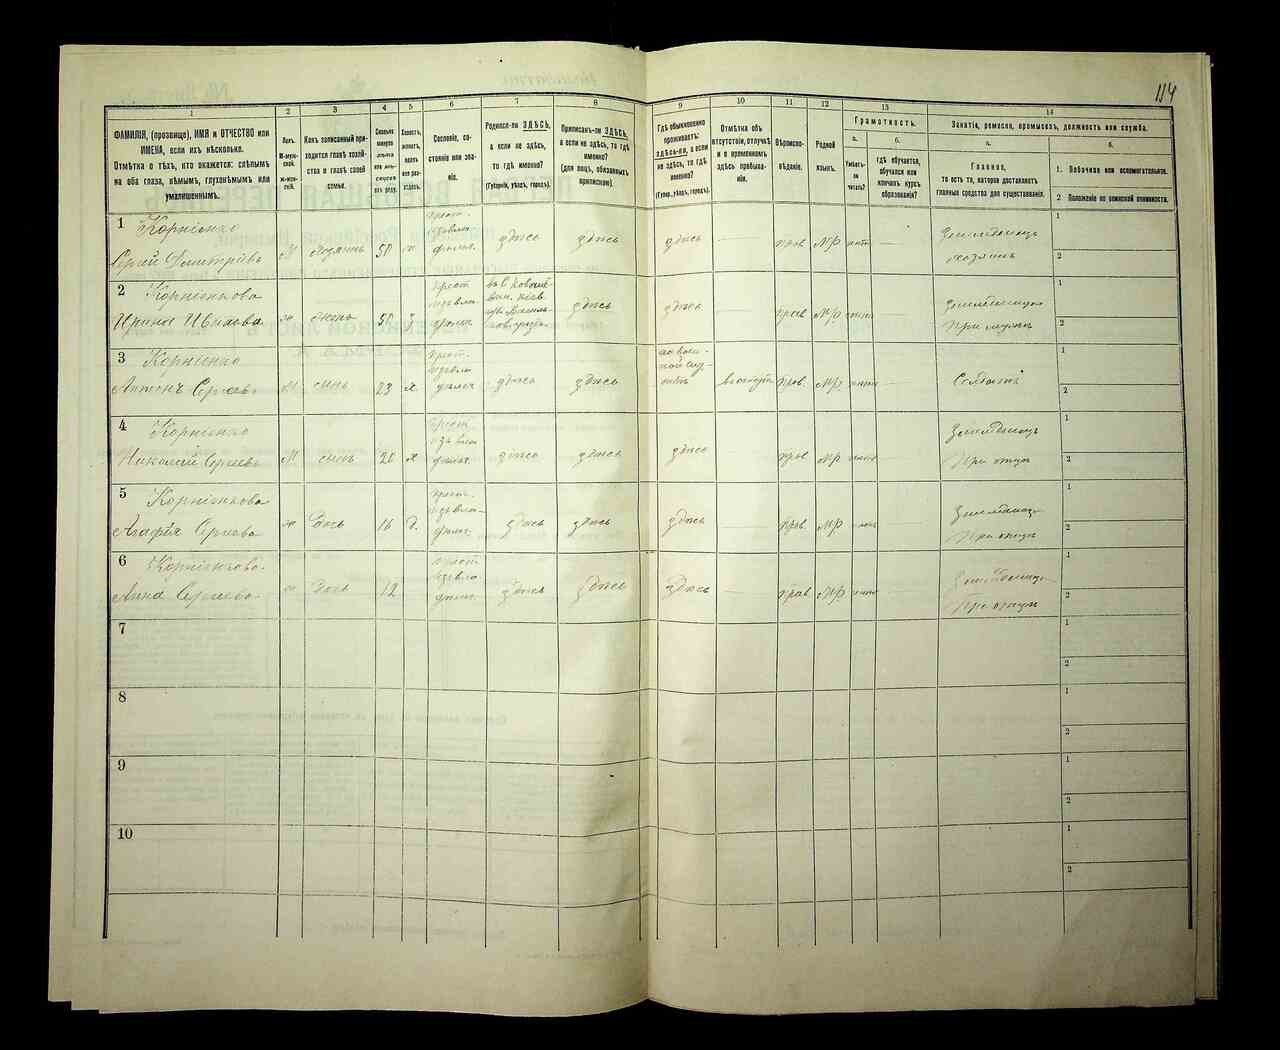 114
1
2
3
4
5
6
7
8
9
10
11
12
13
14
ФАМИЛІЯ, (прозвище), ИМЯ и ОТЧЕСТВО или
ИМЕНА, если ихъ нѣсколько.
Отмѣтка о тѣхъ, кто окажется: слѣпымъ
на оба глаза, нѣмымъ, глухонѣмымъ или
умалишеннымъ.
Полъ.
М-мужской.
Ж-женскій.
Какъ записанный приходится главѣ хозяйства и главѣ своей семьи.
Сколько минуло лѣтъ
Холостъ, женатъ, вдовъ или разведенъ.
Сословіе, состояніе или званіе.
Родился-ли ЗДѢСЬ,
а если не здѣсь,
то гдѣ именно?
(Губернія, уѣздъ, городъ).
Приписанъ-ли ЗДѢСЬ,
а если не здѣсь, то гдѣ
именно?
(для лицъ, обязанныхъ
припискою).
Гдѣ обыкновенно
проживаетъ:
здѣсь-ли, а если
не здѣсь, то гдѣ
именно?
(Губер., уѣздъ, городъ).
Отмѣтка объ
отсутствіи, отлучкѣ
и о временномъ
здѣсь пребываніи.
Вѣроисповѣданіе.
Родной
языкъ.
Грамотность.
а.
Умѣетъ-ли
читать?
б.
гдѣ обучается,
обучался или
кончилъ курсъ
образованія?
Занятіе, ремесло, промыселъ, должность или служба.
а.
Главное,
то есть то, которое доставляетъ
главныя средства для существованія.
б.
1. Побочное или вспомогательное.
2 Положеніе по воинской повинности.
1 Корніенко
Сергій Дмитріевъ
М хозяинъ 50 ж
крест. изъ влад. здѣсь здѣсь здѣсь — прав МР —
Земледѣлецъ
хозяинъ
1
2
2 Корніенкова
Ирина Иванова
ж жена 50 здѣсь здѣсь прав МР —
при мужѣ
1
2
3 Корніенко
Антонъ Сергіевъ
М сынъ 23 х
крест. здѣсь здѣсь прав МР —
Солдатъ
1
2
4 Корніенко
Николай Сергіевъ
М сынъ 20 х
крест изъ влад здѣсь здѣсь здѣсь — прав МР —
Земледѣлецъ
При отцѣ
1
2
5 Корніенкова
Агафія Сергіева
ж Дочь 16 д.
крест. изъ влад здѣсь здѣсь здѣсь — прав МР —
При отцѣ
1
2
6 Корніенкова
Анна Сергіева
ж Дочь 12
крест изъ влад здѣсь здѣсь здѣсь — прав МР —
При отцѣ
1
2
7
1
2
8
1
2
9
1
2
10
1
2